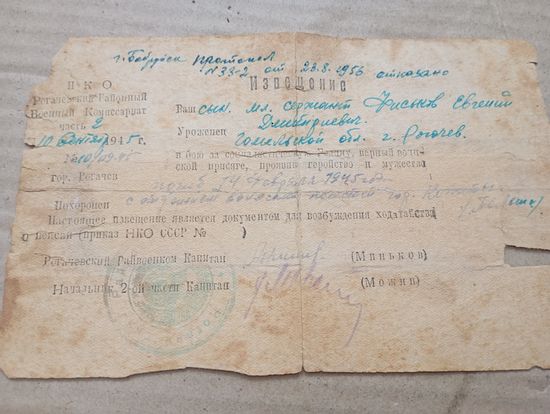 г. Бобруйск протокол
№ 33-2 от 23.8.1956 отказано
НКО
Рогачевский Районный
Военный Комиссариат
часть 2
10 Сентября 1945 г.
гор. Рогачев
Извещение
Ваш сын мл. сержант Евгений
Дмитриевич.
Уроженец Гомельской обл. г. Рогачев.
в бою за социалистическую Родину, верный воин-
ской присяге, проявив геройство и мужество
погиб 14 февраля 1945 года
Похоронен с отданием воинских почестей гор.
Настоящее извещение является документом для возбуждения ходатайства
о пенсии (приказ НКО СССР № )
Рогачевский Райвоенком Капитан (Миньков)
Начальник 2-ой части Капитан (Можив)